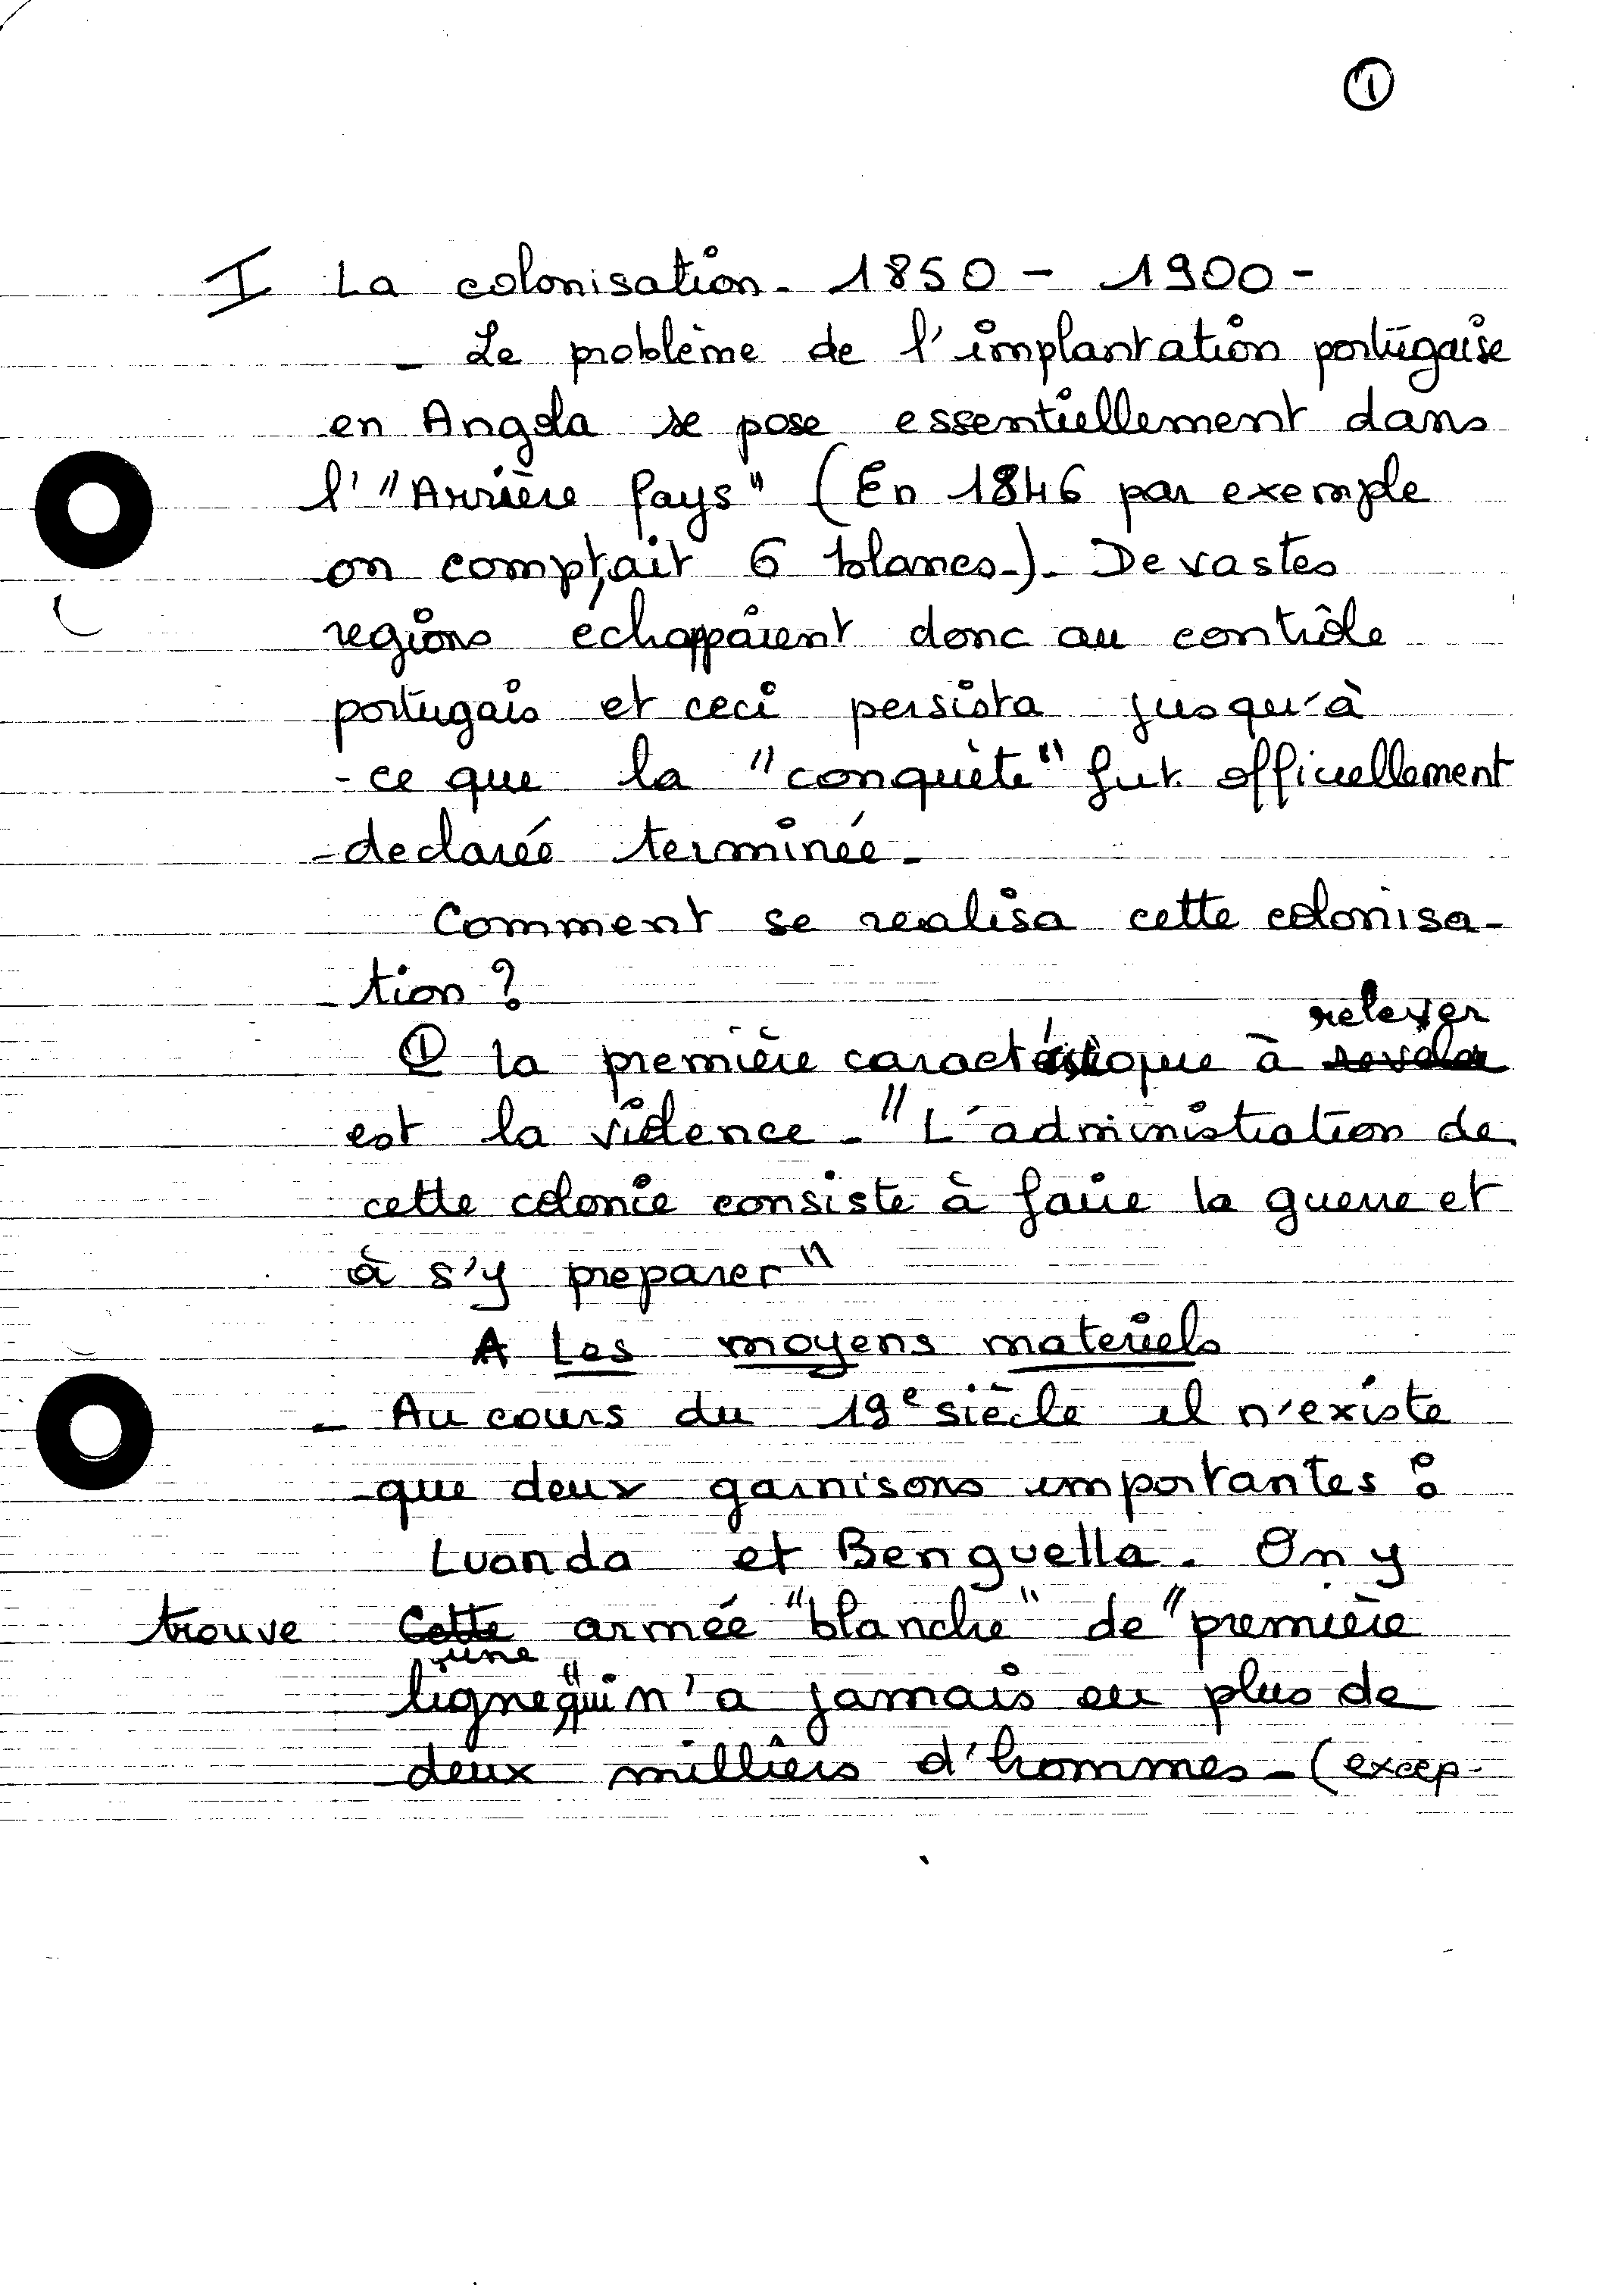 ①
I La colonisation. 1850 - 1900 -
- Le problème de l'implantation portugaise
en Angola se pose essentiellement dans
l' "Arrière Pays" (En 1846 par exemple
on comptait 6 blancs.). De vastes
regions échappaient donc au contrôle
portugais et ceci persista jusqu'à
-ce que la "conquète" fut officiellement
-declarée terminée.
Comment se realisa cette colonisa-
-tion ?
relever
① la première caractéristique à
est la violence. "L'administration de
cette colonie consiste à faire la guerre et
à s'y preparer"
A Les moyens materiels
- Au cours du 19e siècle il n'existe
-que deux garnisons importantes :
Luanda et Benguella. On y
trouve Cette armée "blanche" de "première
une
ligne" qui n'a jamais eu plus de
deux milliers d'hommes - (excep-